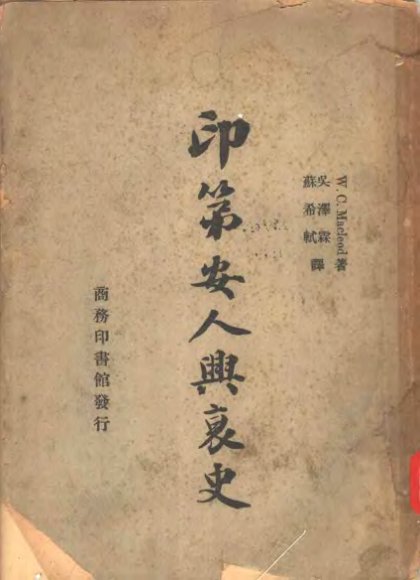 W. C. Macleod 著
吳澤霖
蘇希軾 譯
印第安人興衰史
商務印書館發行